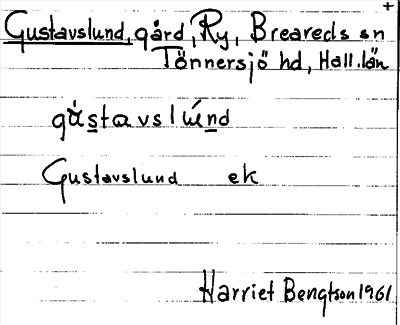 +
Gustavslund, gård, Ry, Breareds sn
Tönnersjö hd, Hall. län
gùstavslúnd
Gustavslund ek
Harriet Bengtson 1961